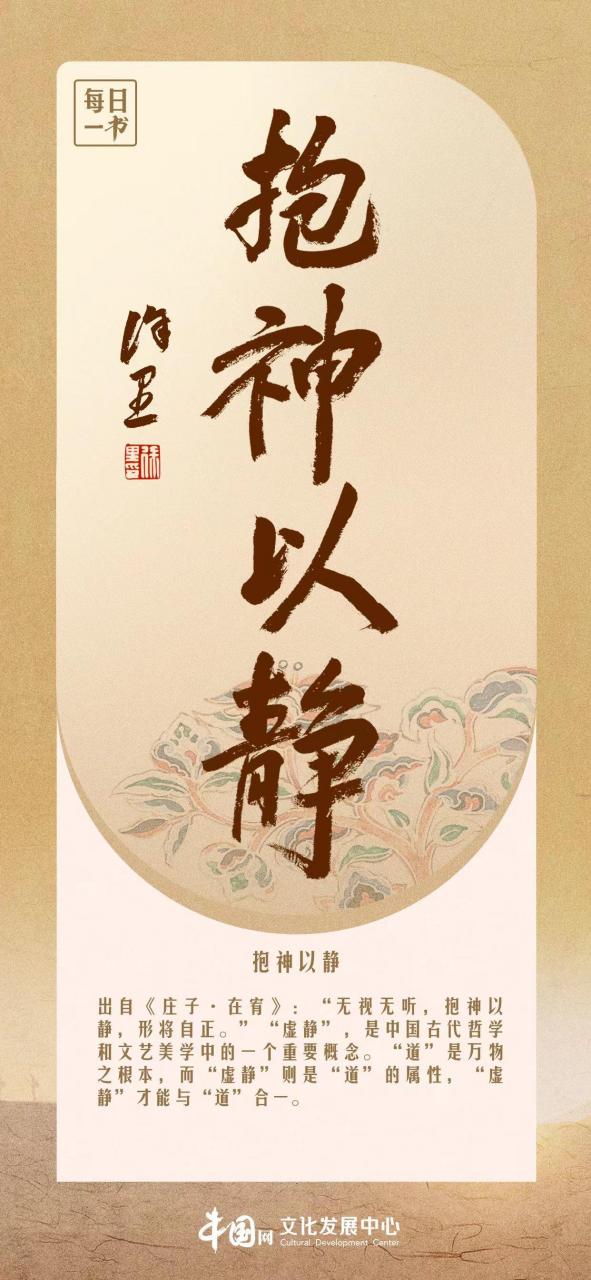 每日
一书
抱神以静
徐里
抱神以静
出自《庄子·在宥》：“无视无听，抱神以
静，形将自正。”“虚静”，是中国古代哲学
和文艺美学中的一个重要概念。“道”是万物
之根本，而“虚静”则是“道”的属性，“虚
静”才能与“道”合一。
中国网 文化发展中心
Cultural Development Center